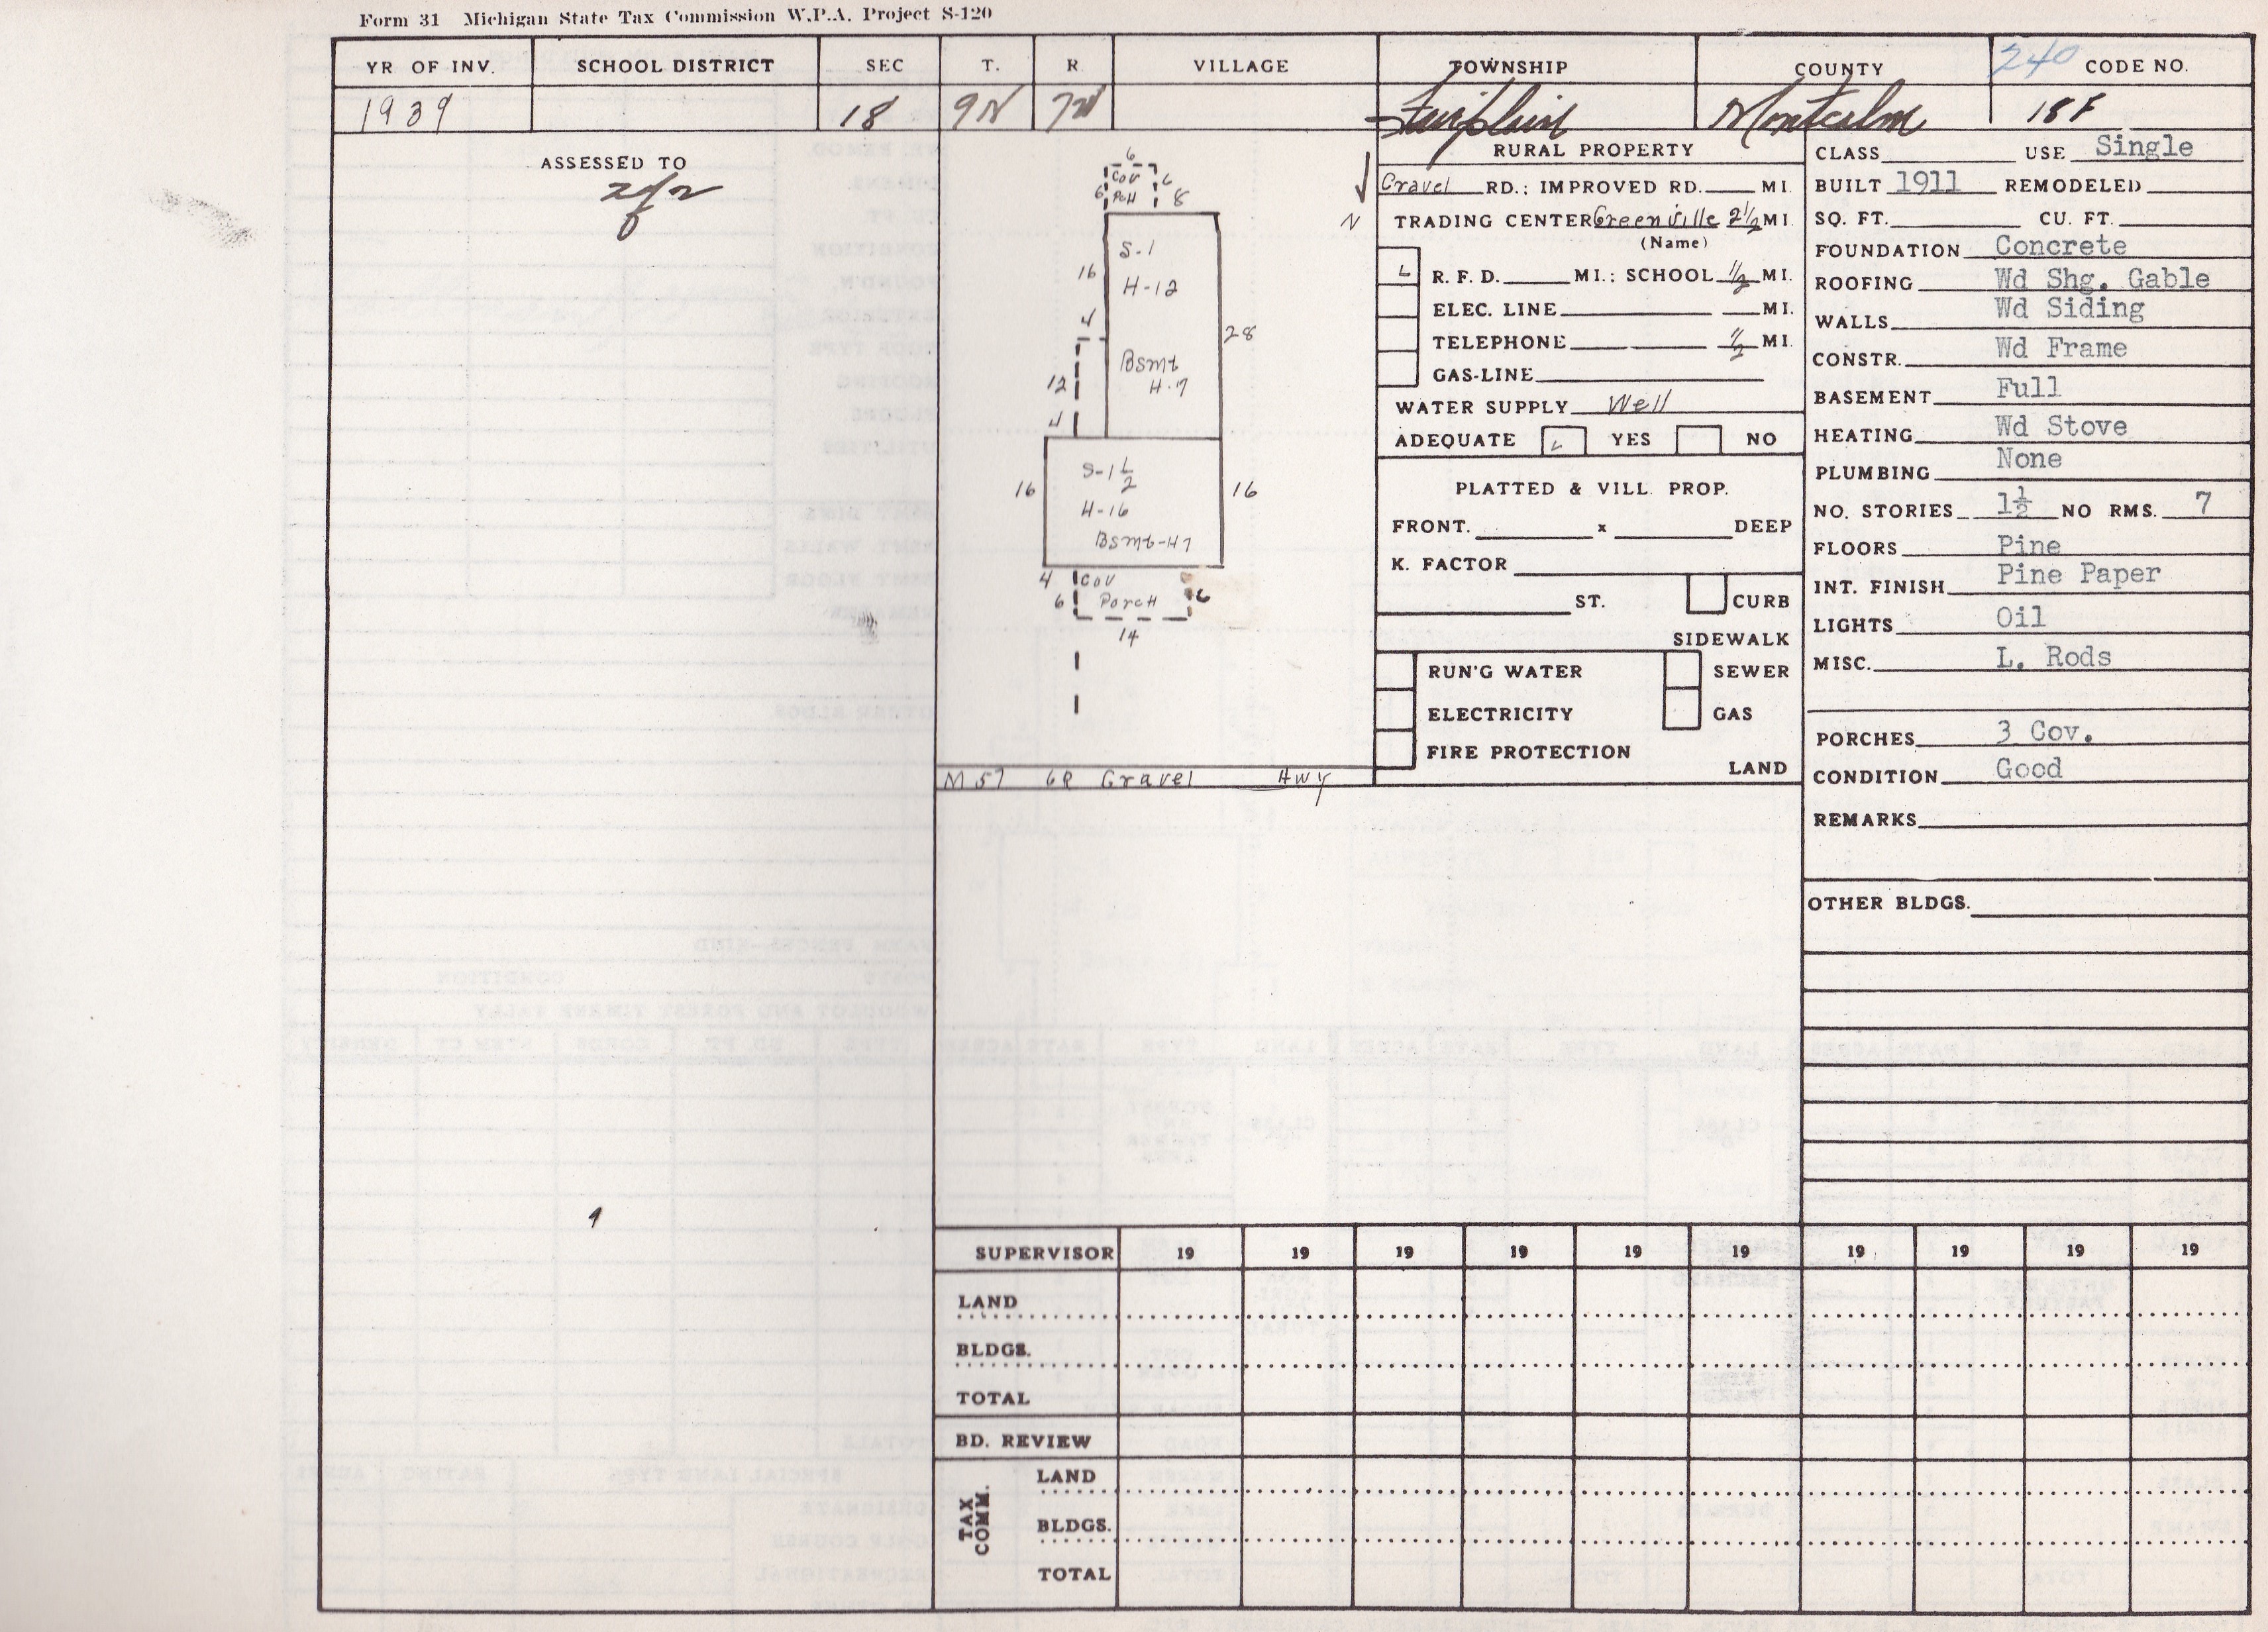 Form 31 Michigan State Tax Commission W.P.A. Project S-120
YR OF INV. SCHOOL DISTRICT SEC T. R VILLAGE TOWNSHIP COUNTY 240 CODE NO.
1939 18 9N 7W Fairplain Montcalm 18F
ASSESSED TO
2 of 2
6
Cov
6 PcH 6
8
S-1
16
H-12
4
28
Bsmt
12 H-7
4
S-1 1/2
16 16
H-16
Bsmt-H7
4 Cov
6 Porch 6
14
M 57 GR Gravel Hwy
N
RURAL PROPERTY
Gravel RD.; IMPROVED RD. MI.
TRADING CENTER Greenville 2 1/2 MI.
(Name)
R. F. D. MI.; SCHOOL 1/2 MI.
ELEC. LINE MI.
TELEPHONE 1/2 MI.
GAS-LINE
WATER SUPPLY Well
ADEQUATE YES NO
PLATTED & VILL. PROP.
FRONT. x DEEP
K. FACTOR
ST. CURB
SIDEWALK
RUN'G WATER SEWER
ELECTRICITY GAS
FIRE PROTECTION
LAND
CLASS USE Single
BUILT 1911 REMODELED
SQ. FT. CU. FT.
FOUNDATION Concrete
ROOFING Wd Shg. Gable
WALLS Wd Siding
CONSTR. Wd Frame
BASEMENT Full
HEATING Wd Stove
PLUMBING None
NO. STORIES 1½ NO RMS. 7
FLOORS Pine
INT. FINISH Pine Paper
LIGHTS Oil
MISC. L. Rods
PORCHES 3 Cov.
CONDITION Good
REMARKS
OTHER BLDGS.
SUPERVISOR 19 19 19 19 19 19 19 19 19 19
LAND
BLDGS.
TOTAL
BD. REVIEW
TAX COMM.
LAND
BLDGS.
TOTAL